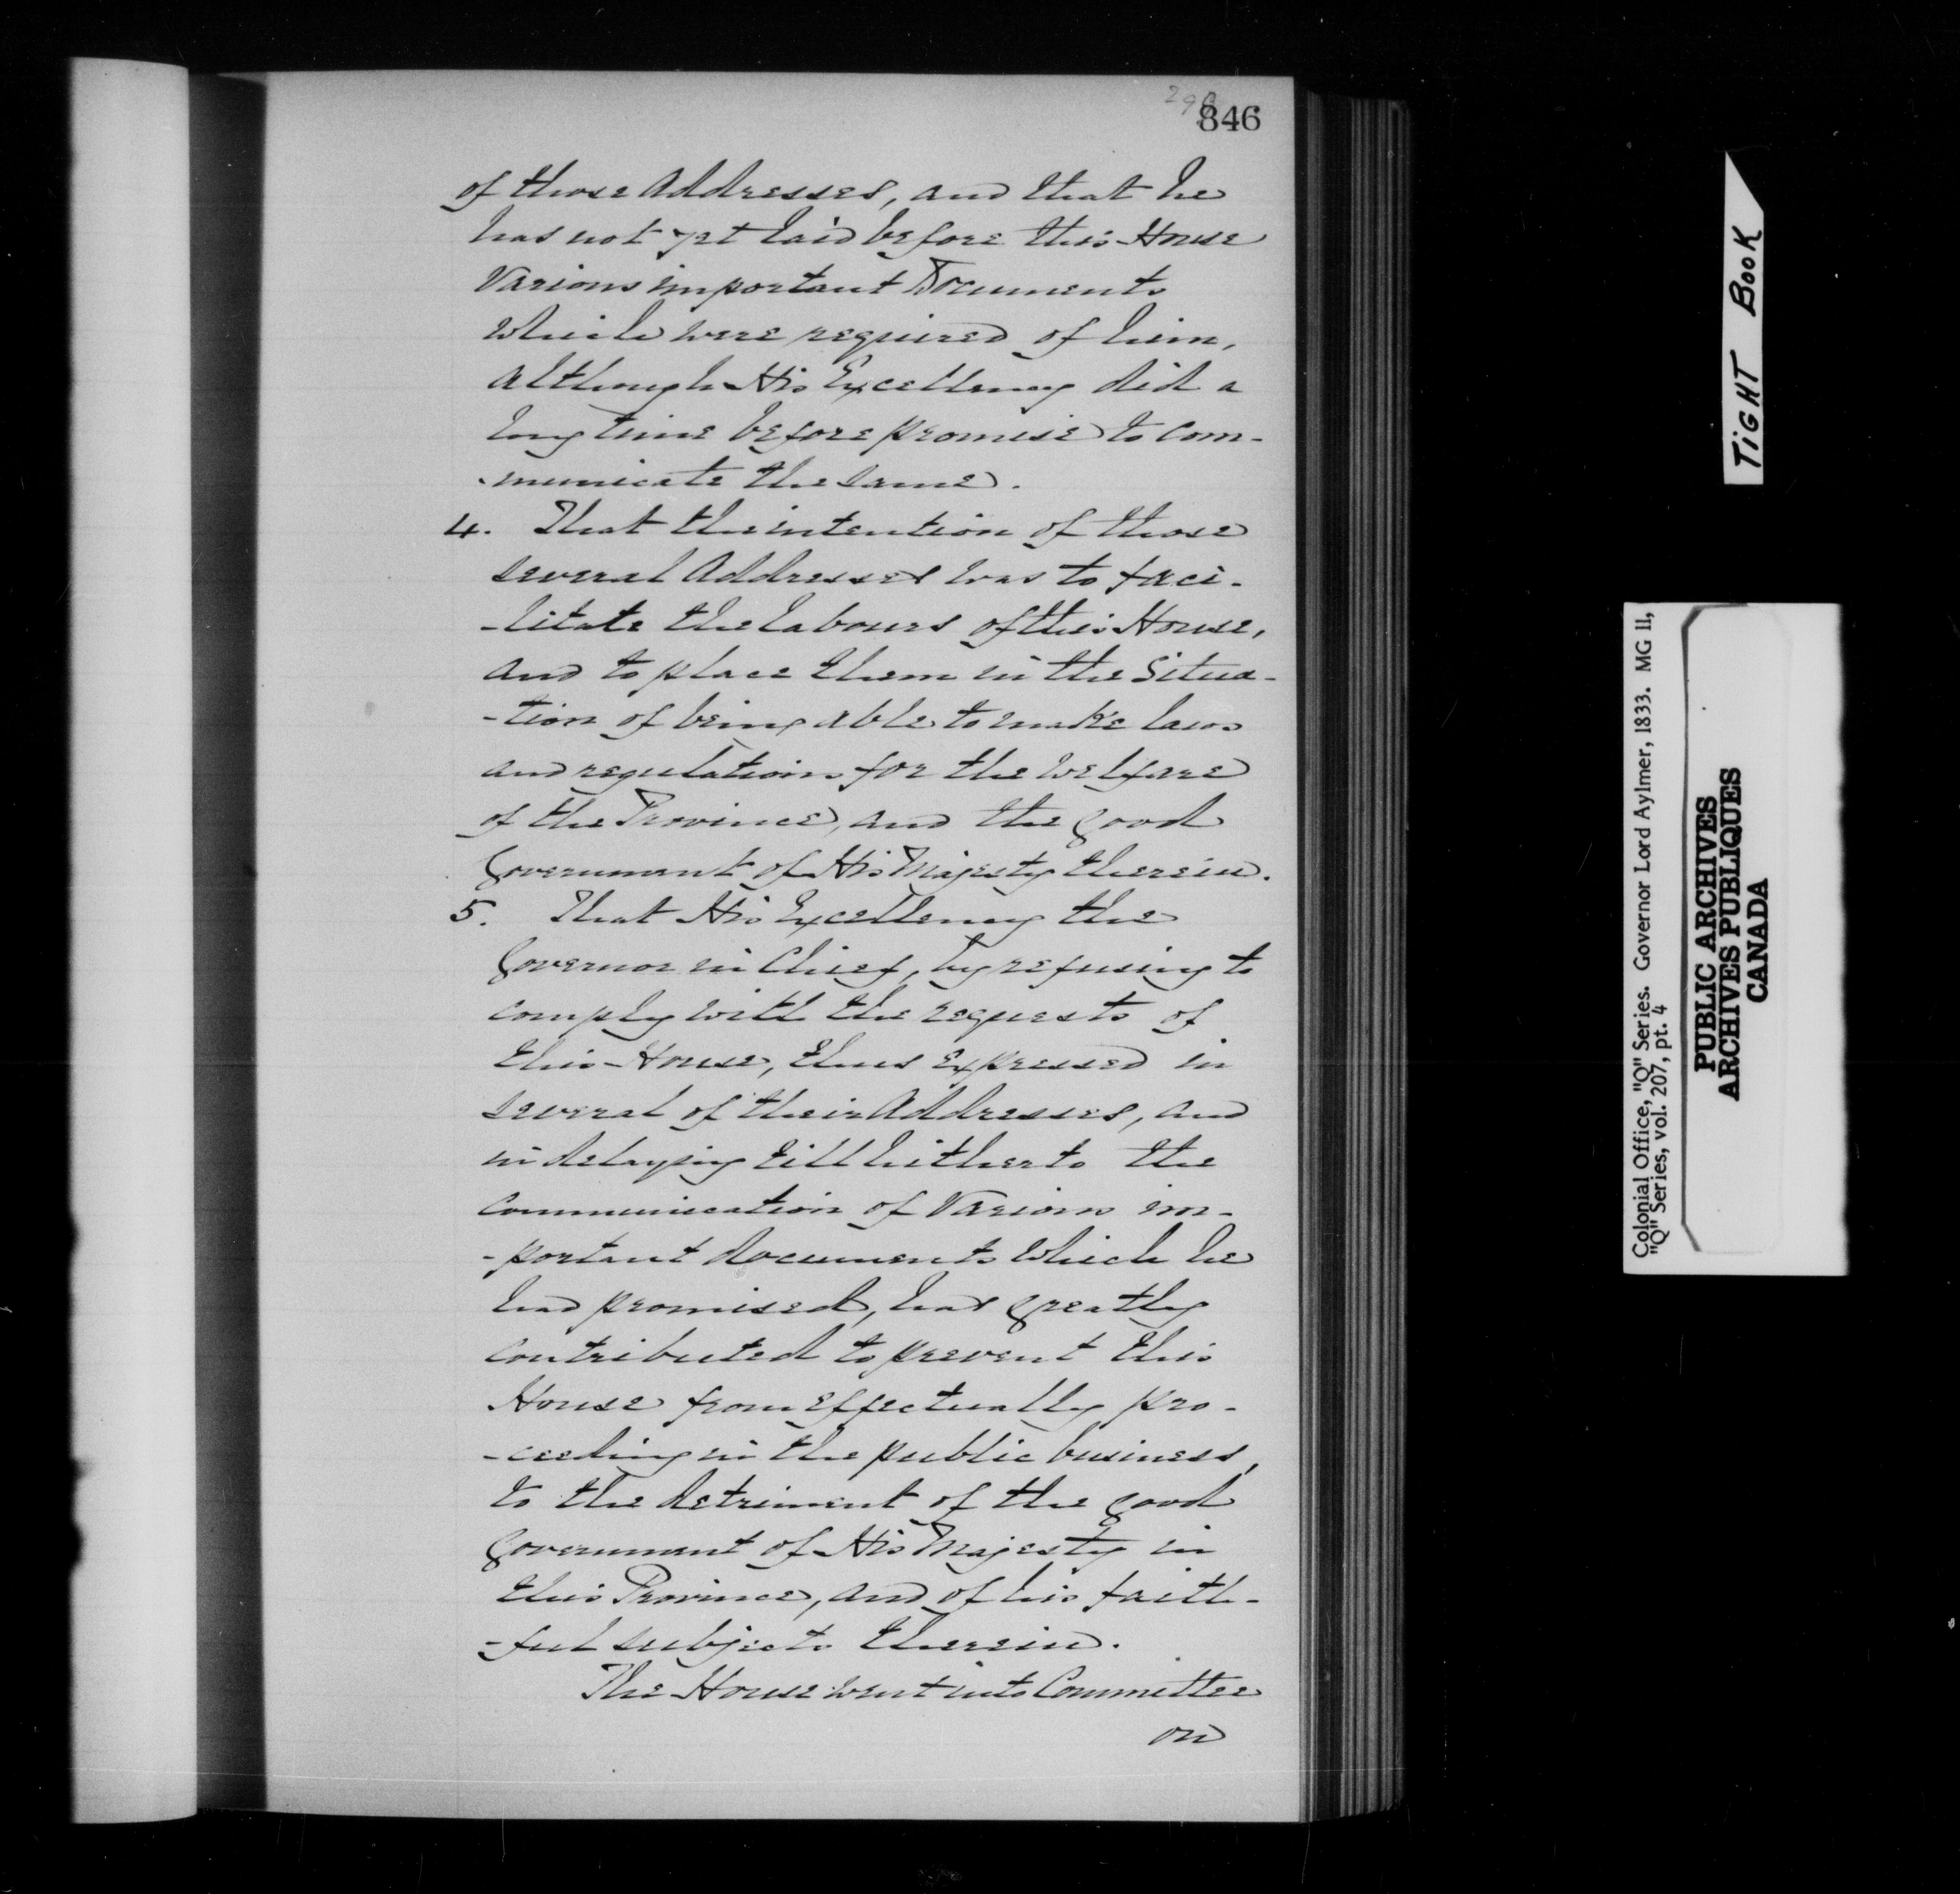 846
of those Addresses, and that he
has not yet laid before this House
Various important Documents
which were required of him,
although His Excellency did a
long time before promise to com-
-municate the same.
4. That the intention of those
several Addresses was to faci-
-litate the labours of this House,
and to place them in the Situa-
-tion of being able to make laws
and regulations for the welfare
of the Province, and the good
Government of His Majesty therein.
5. That His Excellency the
Governor in Chief, by refusing to
comply with the requests of
this House, thus expressed in
several of their Addresses, and
in delaying till hitherto the
Communication of Various im-
-portant documents which he
had promised, has greatly
contributed to prevent this
House from effectually pro-
-ceeding in the public business,
to the detriment of the good
Government of His Majesty in
this Province, and of his faith-
-ful subjects therein.
The House went into Committee
on
TIGHT BOOK
Colonial Office, "Q" Series. Governor Lord Aylmer, 1833. MG 11,
"Q" Series, vol. 207, pt. 4
PUBLIC ARCHIVES
ARCHIVES PUBLIQUES
CANADA